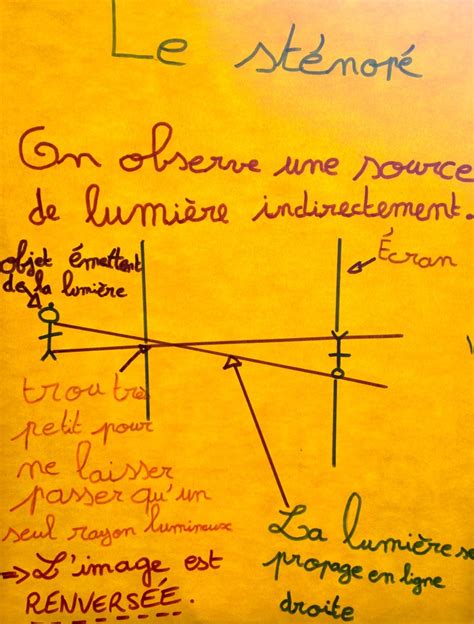 Le sténopé
On observe une source
de lumière indirectement.
objet émettent
de la lumière
Écran
trou très
petit pour
ne laisser
passer qu'un
seul rayon lumineux
=> L'image est
RENVERSÉE.
La lumière se
propage en ligne
droite